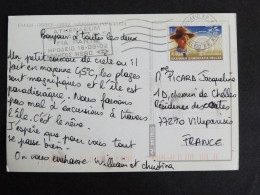 Bonjour à toutes les deux
Un petit coucou de crete où il
fait en moyenne 45°C, les plages
sont magnifiques et l'île est
paradisiaque. Nous faisons
pas mal d'excursions à travers
l'île. C'est le rêve.
J'espère que pour vous tout
se passe bien.
On vous embrasse William et christina
M PICARD Jacqueline
1D, chemin de Chelles
Résidence des
77270 Villeparisis
FRANCE